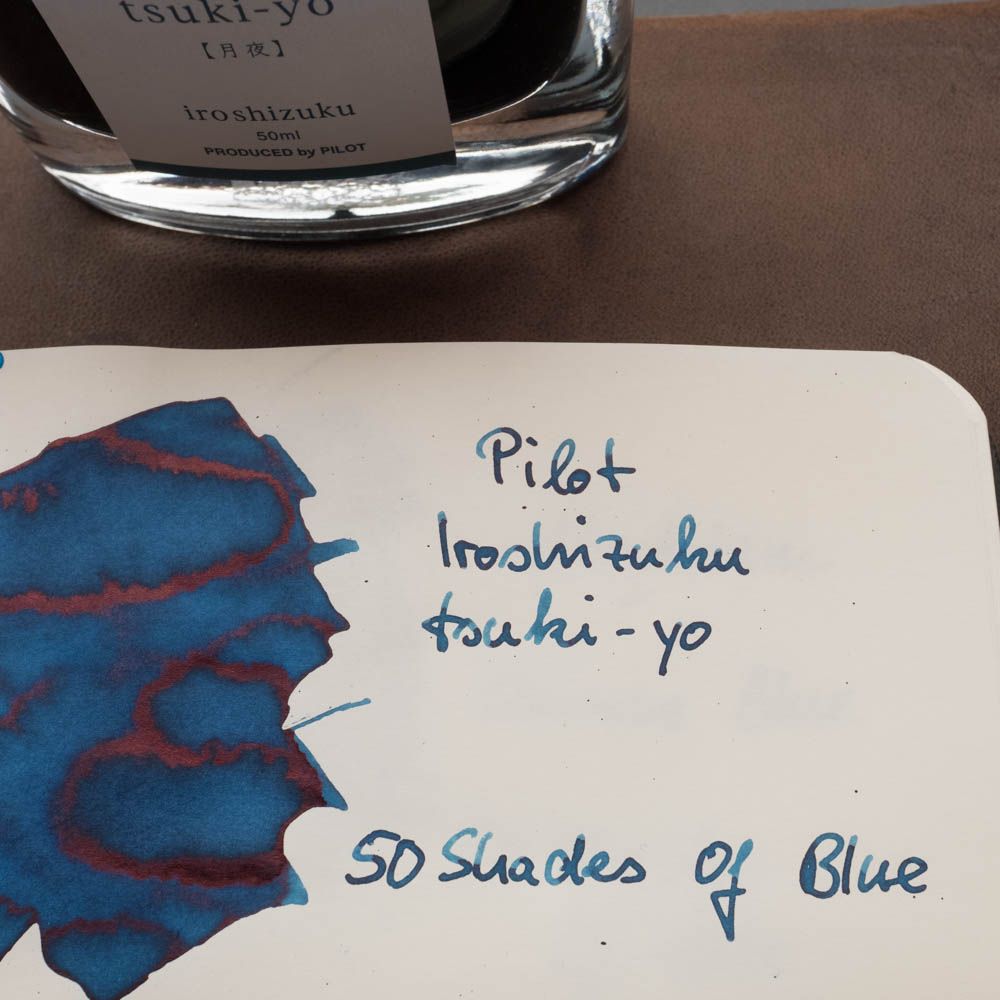 tsuki-yo
【月夜】
iroshizuku
50ml
PRODUCED by PILOT
Pilot
Iroshizuku
tsuki-yo
50 Shades Of Blue